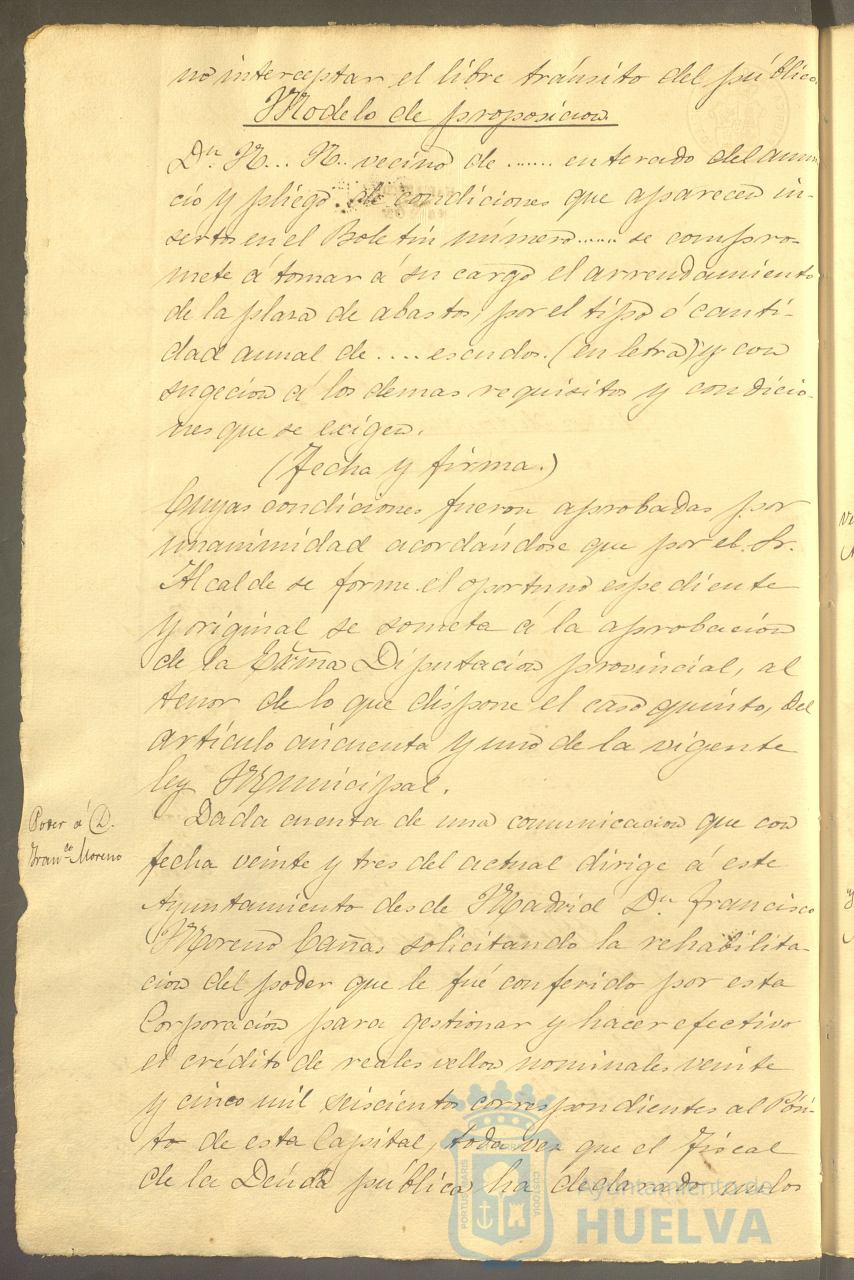 no interceptar el libre tránsito del público.
Modelo de proposicion
Dn. N... N.. vecino de ....... enterado del anun-
cio y pliego de condiciones que aparecen in-
sertos en el Boletin número...... se compro-
mete á tomar á su cargo el arrendamiento
de la plaza de abastos, por el tipo ó canti-
dad annal de .... escudos. (en letra) y con
sugecion á los demas requisitos y condicio-
nes que se exigen.
(Fecha y firma.)
Cuyas condiciones fueron aprobadas por
unanimidad acordándose que por el Sr.
Alcalde se forme el oportuno espediente
y original se someta á la aprobacion
de la Exma Diputacion provincial, al
tenor de lo que dispone el caso quinto, del
artículo cincuenta y uno de la vigente
ley Municipal.
Poder á D.
Franco. Moreno
Dada cuenta de una comunicacion que con
fecha veinte y tres del actual dirige á este
Ayuntamiento desde Madrid Dn. Francisco
Moreno Cañas solicitando la rehabilita-
cion del poder que le fué conferido por esta
Corporacion para gestionar y hacer efectivo
el crédito de reales vellon nominales veinte
y cinco mil seiscientos correspondientes al Pósi-
to de esta Capital, toda vez que el Fiscal
de la Deuda pública ha declarado nulos
PORTUS MARIS
CUSTODIA
Ayuntamiento de
HUELVA